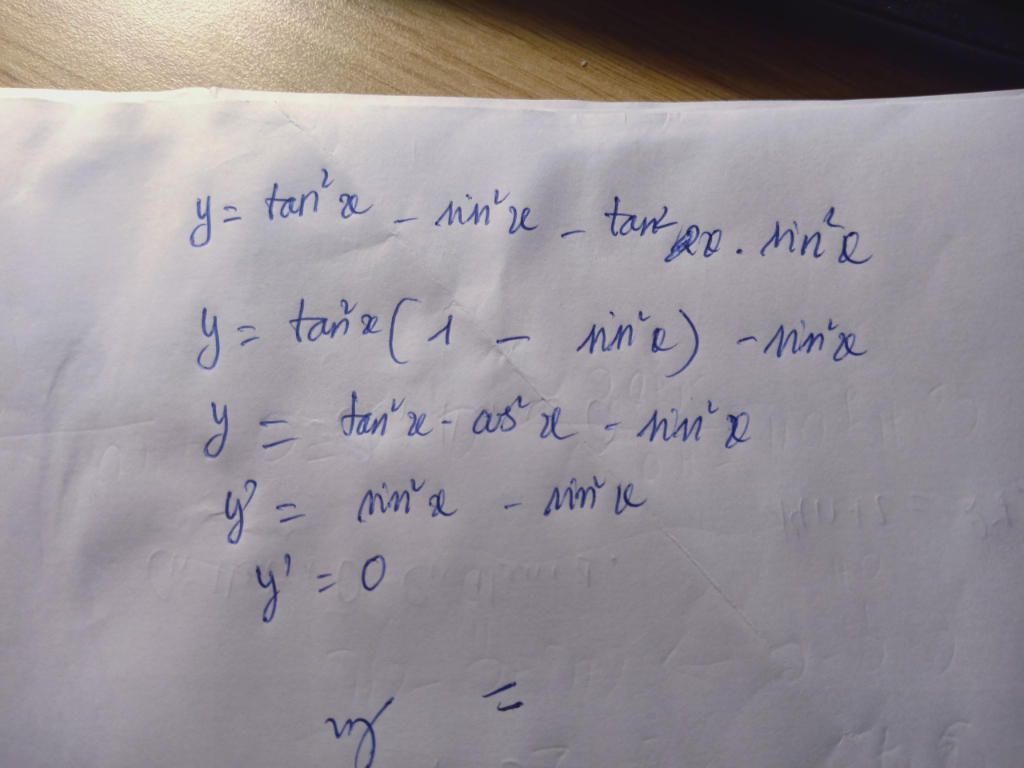 y = tan²x - sin²x - tan²x . sin²x
y = tan²x ( 1 - sin²x) - sin²x
y = tan²x - cos²x - sin²x
y' = sin²x - sin²x
y' = 0
=